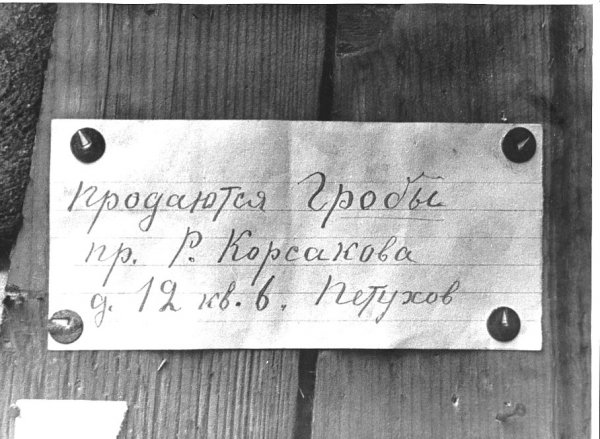 продаются Гробы
пр. Р. Корсакова
д. 12 кв. 6. Петухов